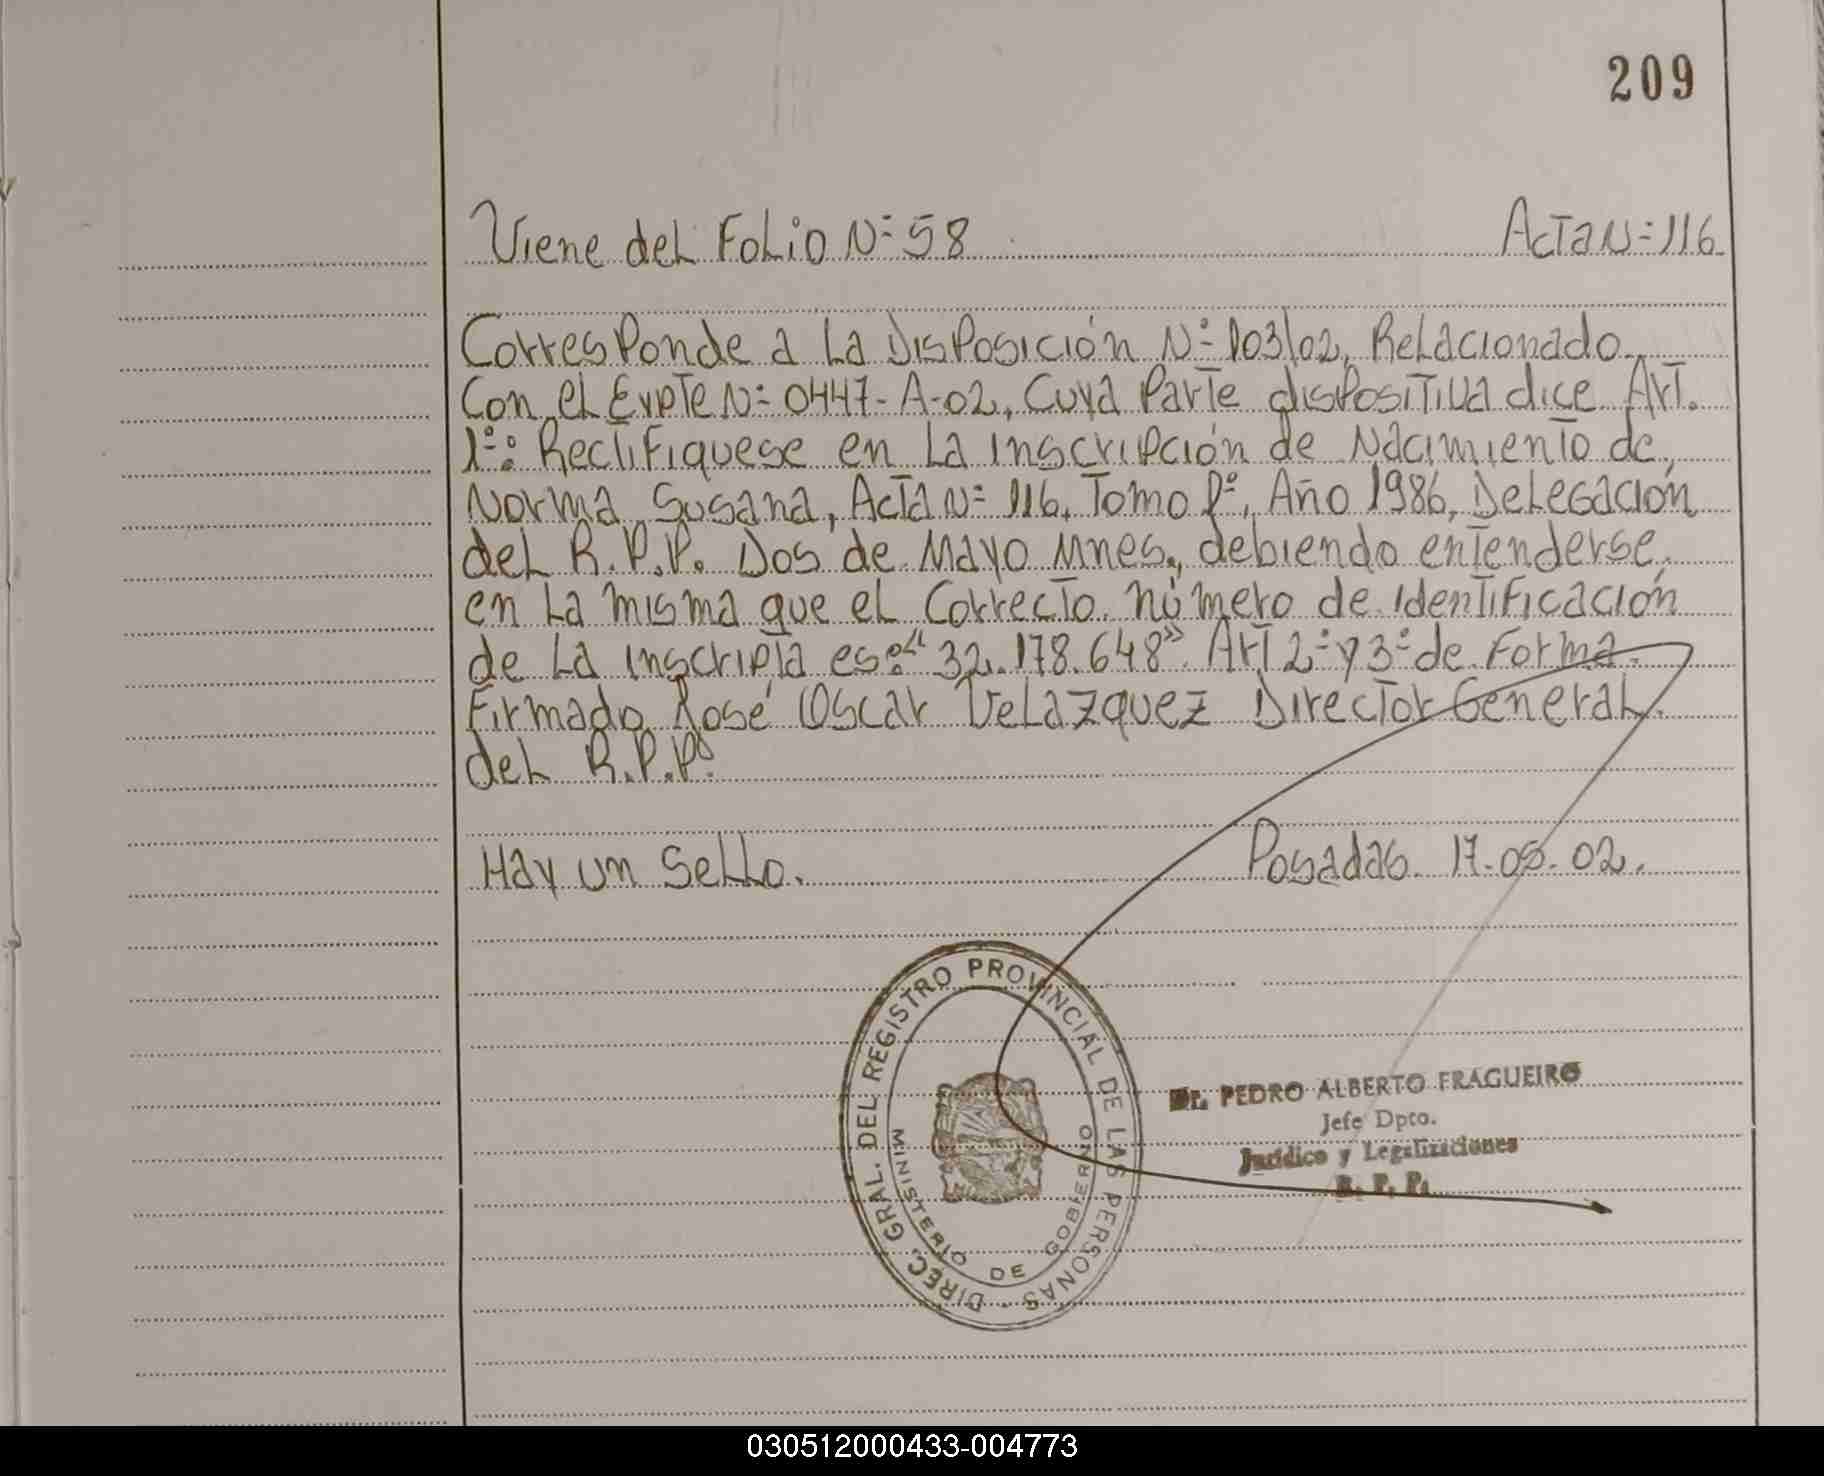 209
Viene del Folio Nº 58 Acta Nº 116
Corresponde a la Disposición Nº 103/02, Relacionado
Con el Expte Nº 0447-A-02, Cuya Parte dispositiva dice Art.
1º: Rectifiquese en la inscripción de Nacimiento de,
Norma Susana, Acta Nº 116, Tomo 1º, Año 1986, Delegación
del R.P.P. Dos de Mayo Mnes., debiendo entenderse,
en la misma que el Correcto número de identificación
de la inscripta es: "32.178.648". Art 2º y 3º de Forma.
Firmado José Oscar Velazquez Director General.
del R.P.P.
Hay un Sello. Posadas 17-05-02.
DIREC. GRAL. DEL REGISTRO PROVINCIAL DE LAS PERSONAS -
MINISTERIO DE GOBIERNO
Dr. PEDRO ALBERTO FRAGUEIRO
Jefe Dpto.
Jurídico y Legalizaciones
R. P. P.
030512000433-004773